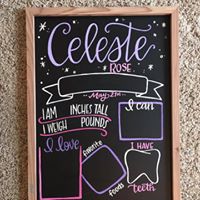 Celeste
ROSE
May 21st
I AM INCHES TALL
I WEIGH POUNDS
I can
I love
favorite
foods
I HAVE
teeth